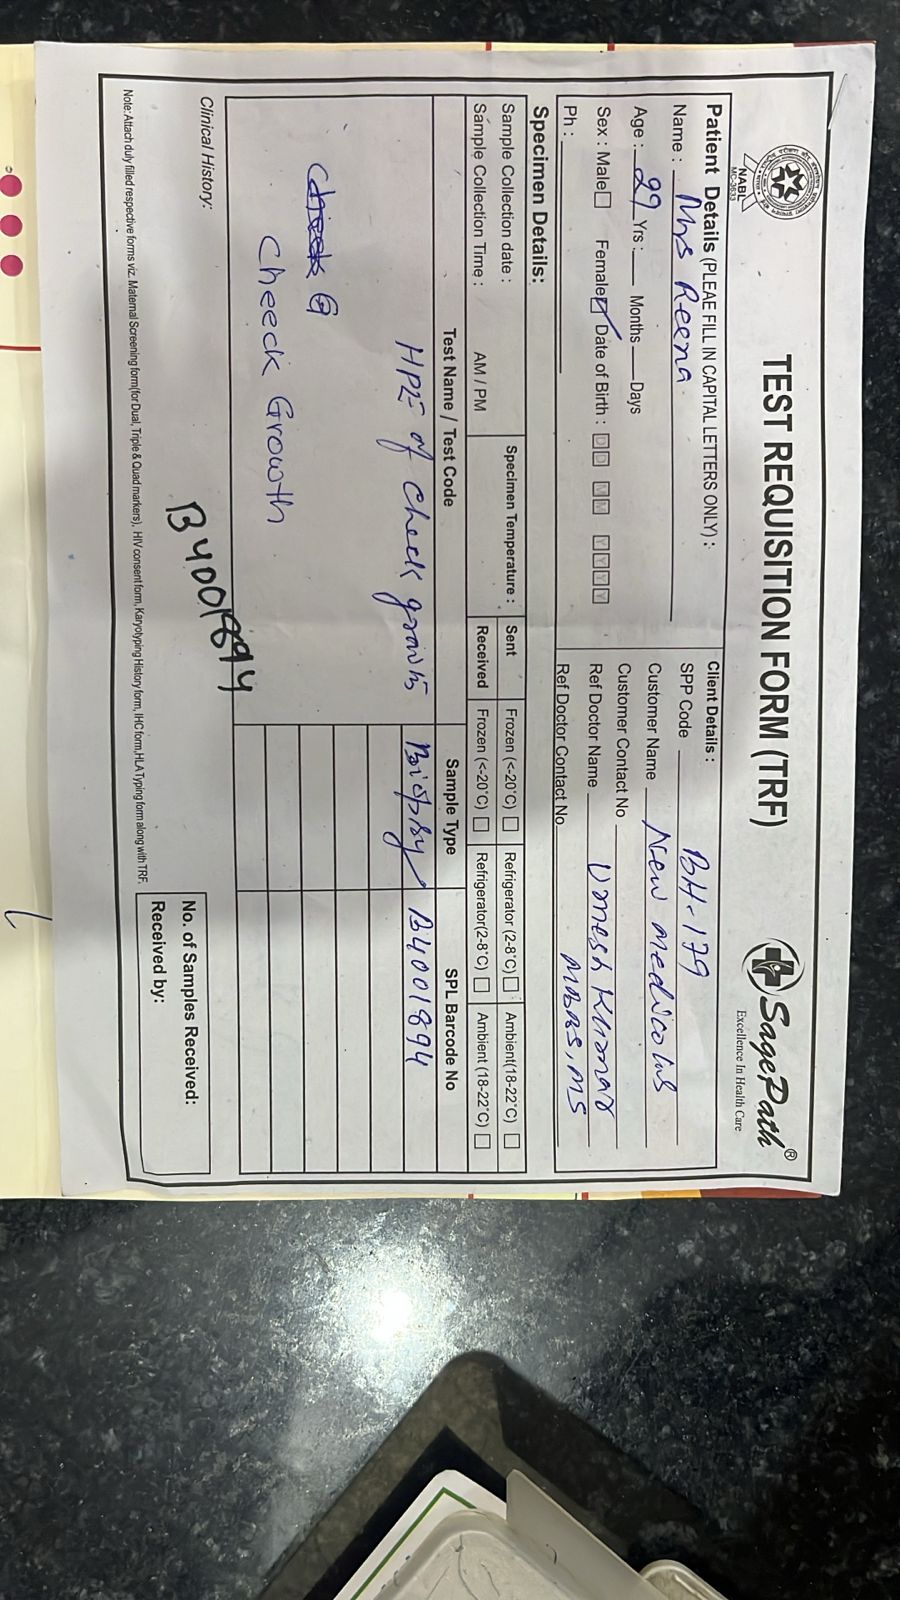 TEST REQUISITION FORM (TRF)
SagePath®
Excellence In Health Care
NABL
MC-3633
Patient Details (PLEAE FILL IN CAPITAL LETTERS ONLY) :
Name : Mrs Reena
Age : 29 Yrs : Months Days
Sex : Male Female Date of Birth : DD MM YYYY
Ph :
Client Details :
SPP Code BH-179
Customer Name New Medicolus
Customer Contact No
Ref Doctor Name Umesh Kumar
MBBS, MS
Ref Doctor Contact No
Specimen Details:
Sample Collection date :
Sample Collection Time : AM / PM
Specimen Temperature :
Sent Frozen (<-20°C) Refrigerator (2-8°C) Ambient(18-22°C)
Received Frozen (<-20°C) Refrigerator(2-8°C) Ambient (18-22°C)
Test Name / Test Code Sample Type SPL Barcode No
HPE of cheek growth Biopsy B4001894
Cheeck Growth
B4001894
Clinical History:
No. of Samples Received:
Received by:
Note:Attach duly filled respective forms viz. Maternal Screening form(for Dual, Triple & Quad markers), HIV consent form, Karyotyping History form, IHC form,HLA Typing form along with TRF.